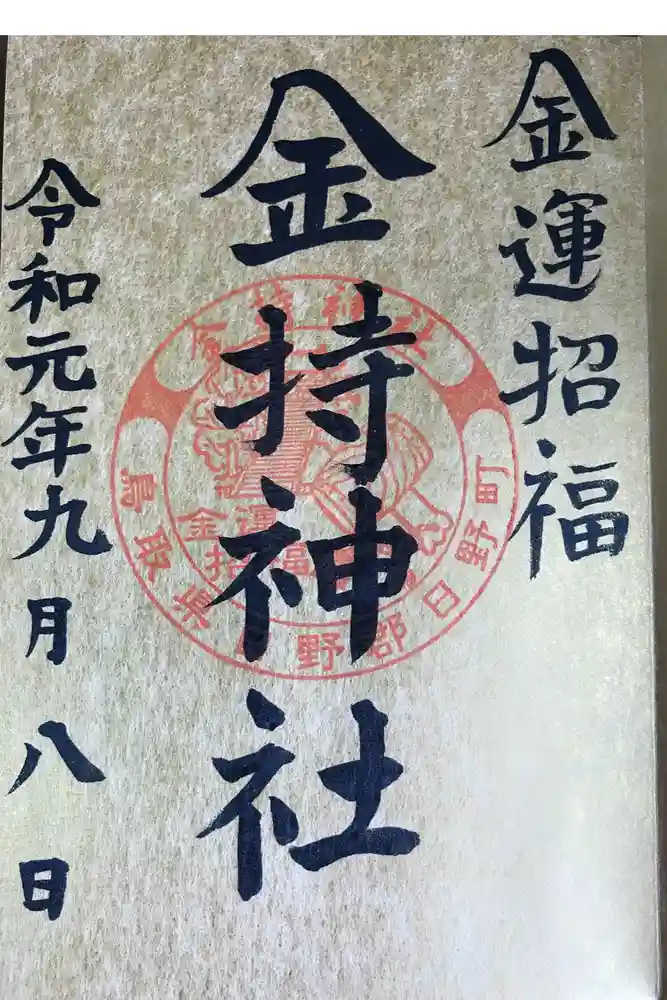 金運招福
金持神社
令和元年九月八日
金持神社
鳥取県日野郡日野町
金運
招福